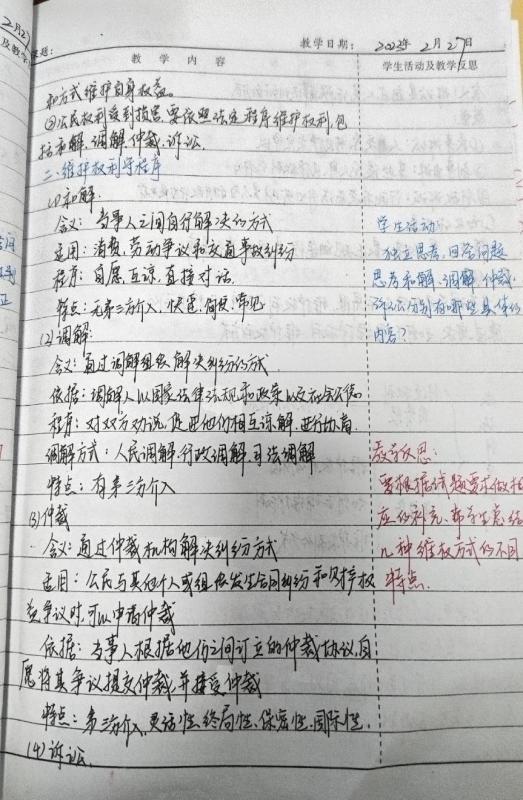 2月27
教学日期： 2023年 2月27日
及教学
课题：
教 学 内 容
学生活动及教学反思
和方式维护自身权益。
③公民权利受到损害，要依照法定程序维护权利，包
括和解、调解、仲裁、诉讼。
二、维护权利守程序
(1)和解.
含义：当事人之间自行解决的方式
适用：消费、劳动争议和交通事故纠纷
程序：自愿互谅，直接对话.
特点：无第三方介入，快速、简便、常见
(2)调解.
含义：通过调解组织解决纠纷的方式
依据：调解人以国家法律法规和政策以及社会公德.
程序：对双方劝说，促进他们相互谅解、进行协商.
调解方式：人民调解.行政调解.司法调解
特点：有第三方介入
(3)仲裁
含义：通过仲裁机构解决纠纷方式
适用：公民与其他个人或组织发生合同纠纷和财产权
益争议时,可以申请仲裁
依据：当事人根据他们之间订立的仲裁协议,自
愿将其争议提交仲裁,并接受仲裁
特点：第三方介入,灵活性、终局性、保密性、国际性.
(4)诉讼.
学生活动
独立思考，回答问题
思考和解、调解、仲裁、
诉讼分别有哪些具体的
内容？
教学反思：
要根据试题要求做相
应的补充、帮学生总结
几种维权方式的不同
特点.